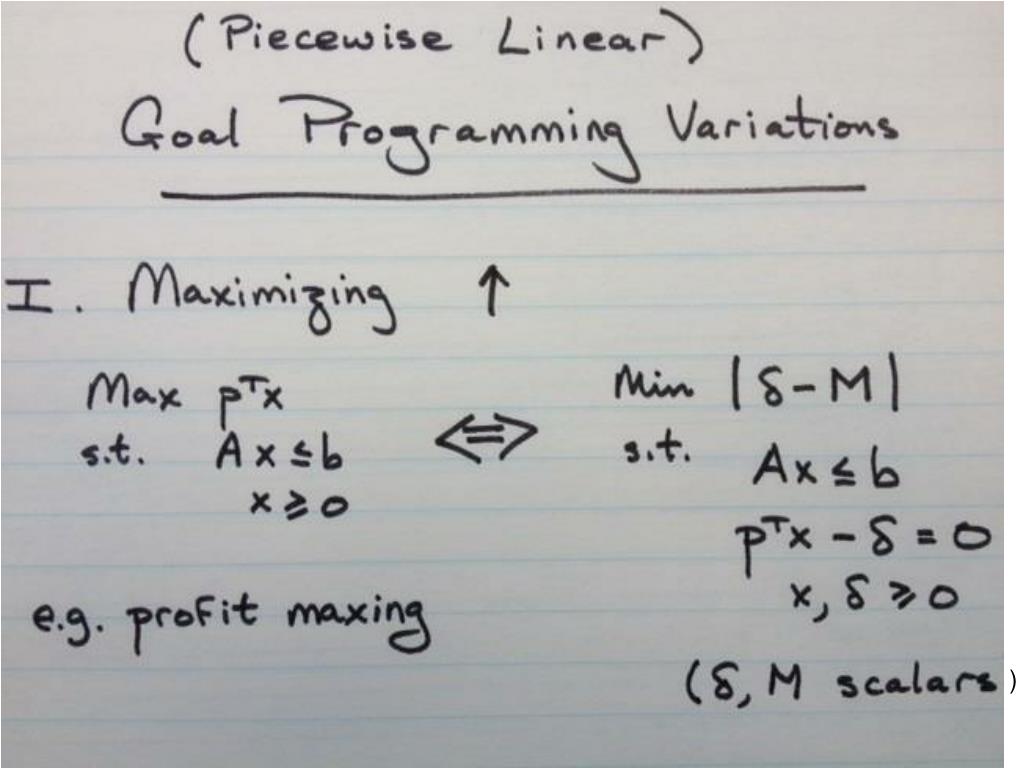 (Piecewise Linear)
Goal Programming Variations
I. Maximizing ↑
Max pᵀx
s.t. Ax ≤ b
x ≥ 0
⇔
Min |δ-M|
s.t. Ax ≤ b
pᵀx - δ = 0
x, δ ≥ 0
e.g. profit maxing
(δ, M scalars)